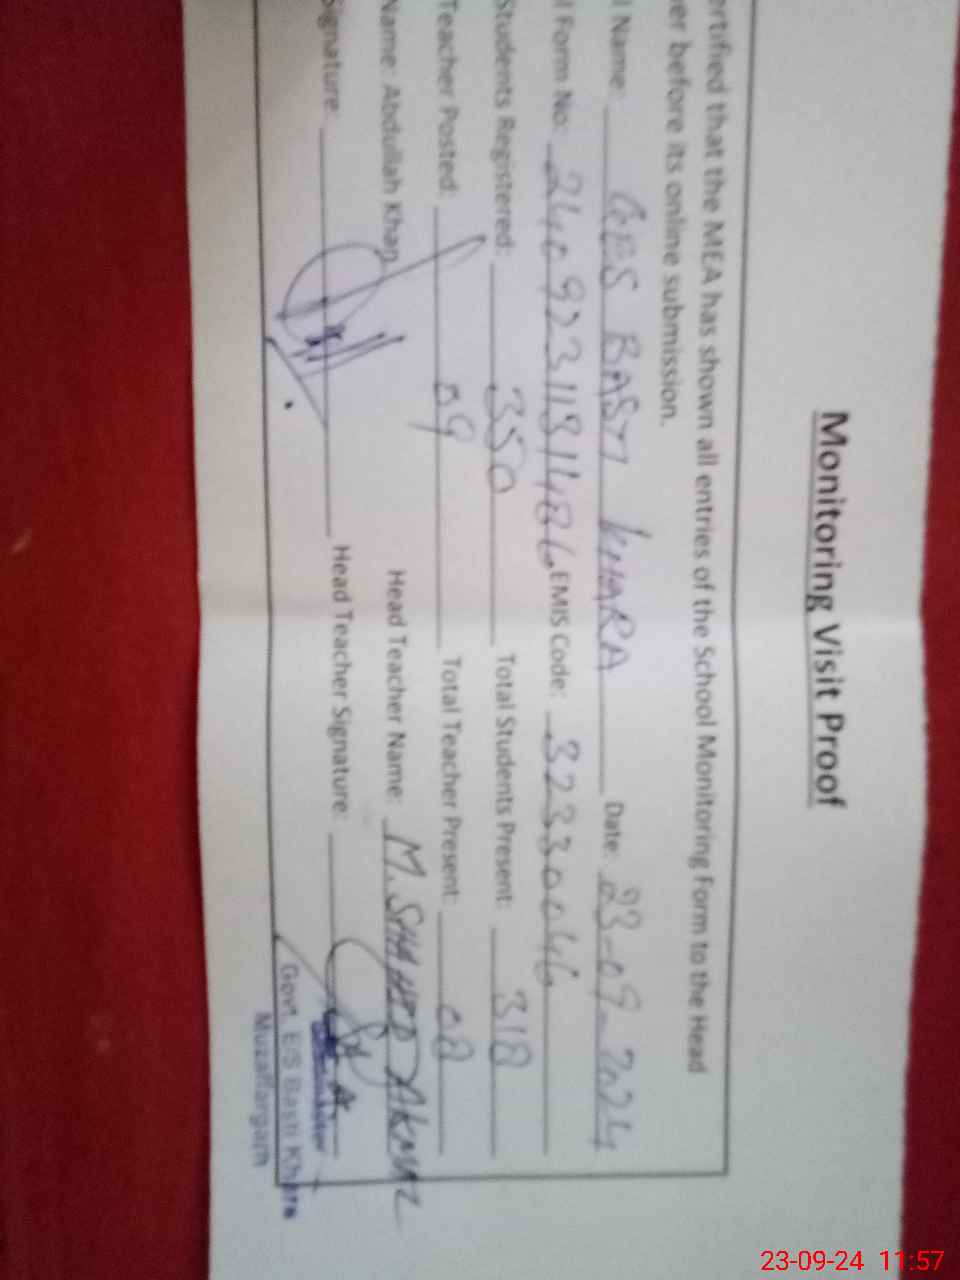 Monitoring Visit Proof
ertified that the MEA has shown all entries of the School Monitoring Form to the Head
er before its online submission.
l Name: GES BASTI KHARA Date: 23-09-2024
l Form No: EMIS Code: 32330046
Students Registered: 350 Total Students Present: 318
Teacher Posted: 09 Total Teacher Present: 08
Name: Abdullah Khan Head Teacher Name: M. SHAHID AKMAL
Signature: Head Teacher Signature:
Govt. E/S Basti Khara
Muzaffargarh
23-09-24 11:57